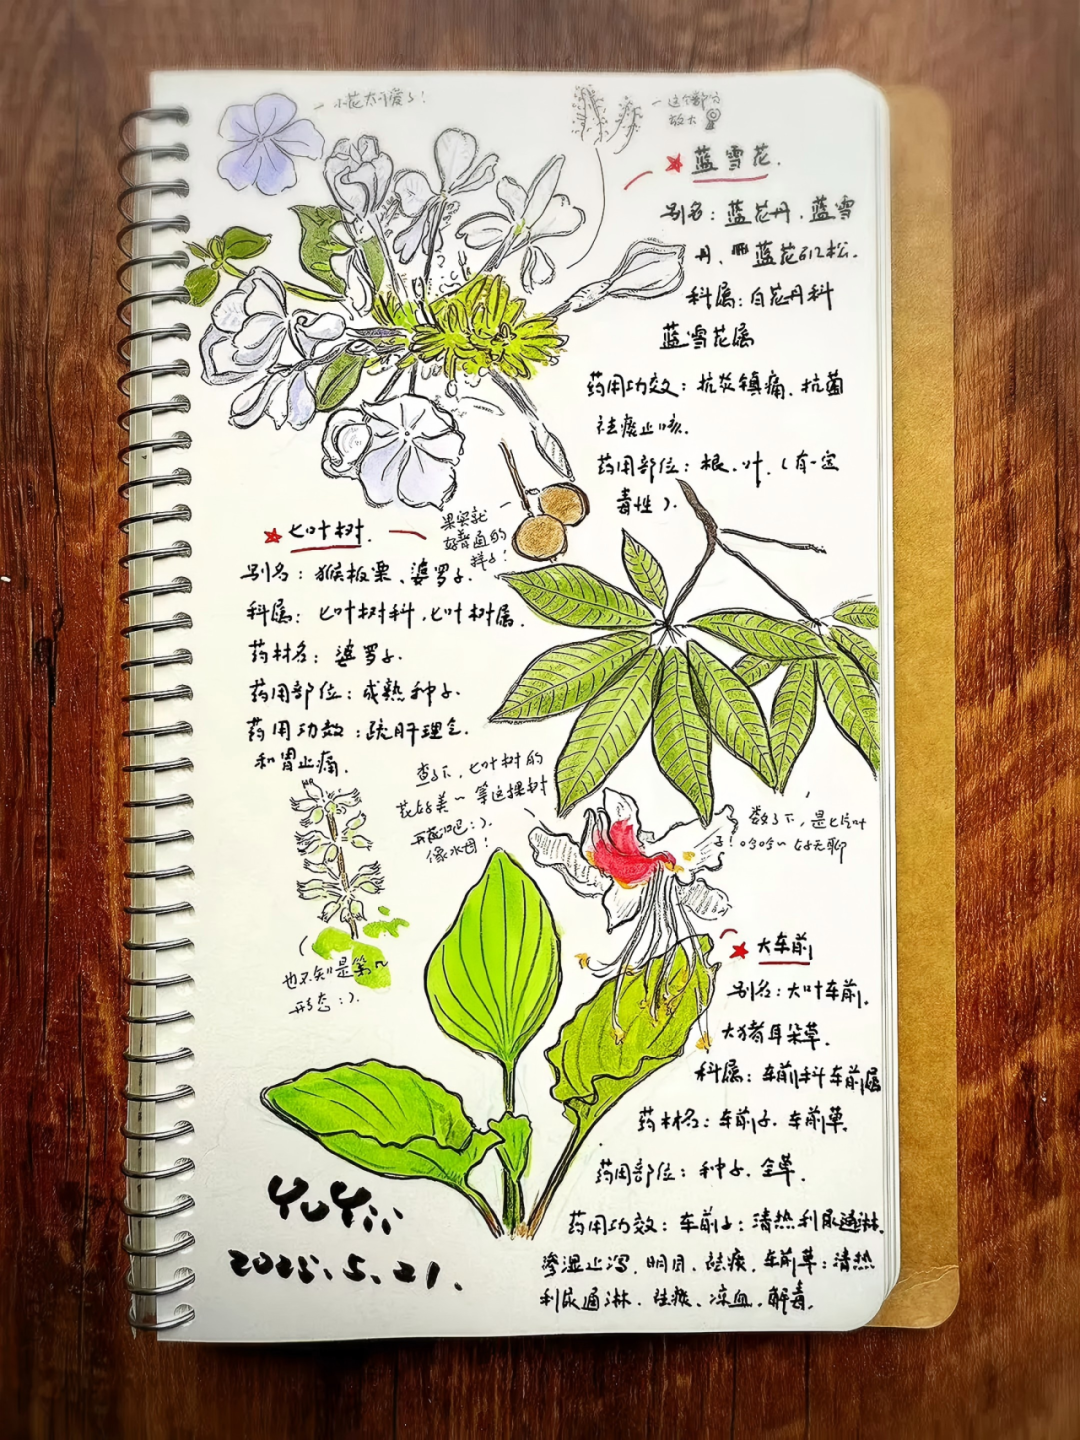 小花太可爱了!
这个部分
放大
蓝雪花.
别名: 蓝花丹、蓝雪
丹、蓝花矶松.
科属: 白花丹科
蓝雪花属
药用功效: 抗炎镇痛、抗菌
祛痰止咳.
药用部位: 根、叶.(有一定
毒性).
果实就
好普通的
样子!
七叶树.
别名: 猴板栗、婆罗子.
科属: 七叶树科,七叶树属.
药材名: 婆罗子.
药用部位: 成熟种子.
药用功效: 疏肝理气.
和胃止痛.
查了下,七叶树的
花好美~ 等这棵树
开花吧:).
像水母!
数了下,是七片叶
子!哈哈~ 好无聊
(
也不知是第几
形态:).
大车前
别名: 大叶车前.
大猪耳朵草.
科属: 车前科车前属
药材名: 车前子、车前草.
药用部位: 种子、全草.
药用功效: 车前子: 清热利尿通淋.
渗湿止泻、明目、祛痰、车前草: 清热
利尿通淋、祛痰、凉血、解毒.
YuYii
2025.5.21.